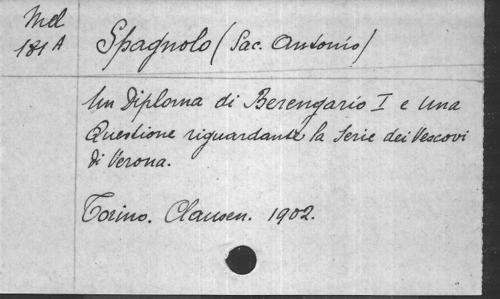 Mel
181 A
Spagnolo (Sac. Antonio)
Un Diploma di Berengario I e Una
Questione riguardante la Serie dei Vescovi
di Verona.
Torino. Clausen. 1902.